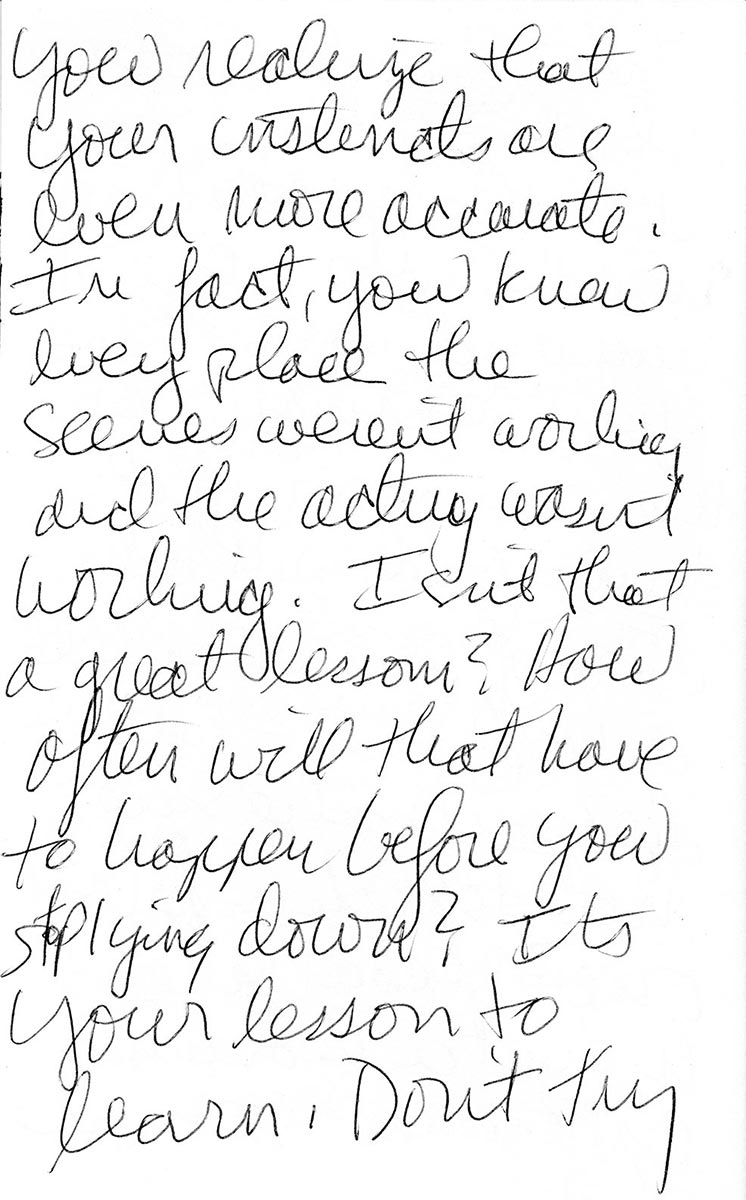 You realize that
your instincts are
even more accurate.
In fact, you knew
every place the
scenes weren't working
and the acting wasn't
working. Isn't that
a great lesson? How
often will that have
to happen before you
stop lying down? Its
your lesson to
learn. Don't try